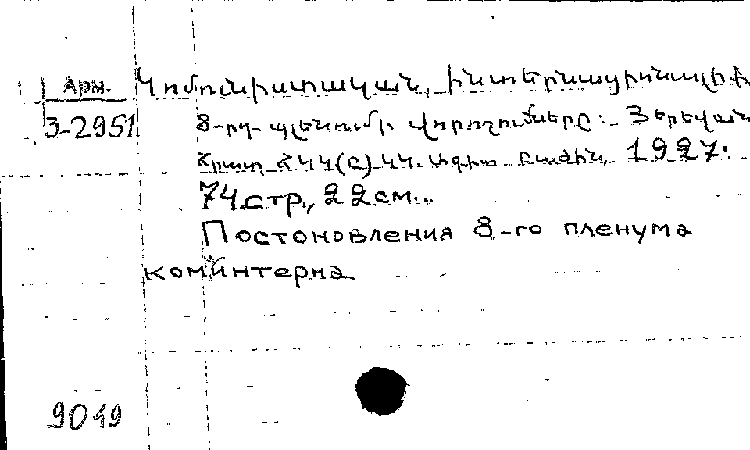 Арм. Կոմունիստական ինտերնացիոնալի
3-2951 8-րդ պլենումի վորոշումները: Յերևան
Հրատ. ՀԿԿ(բ) ԿԿ. Ագիտ. բաժին, 1927.
74 стр., 22 см.
Постоновления 8-го пленума
коминтерна
9019